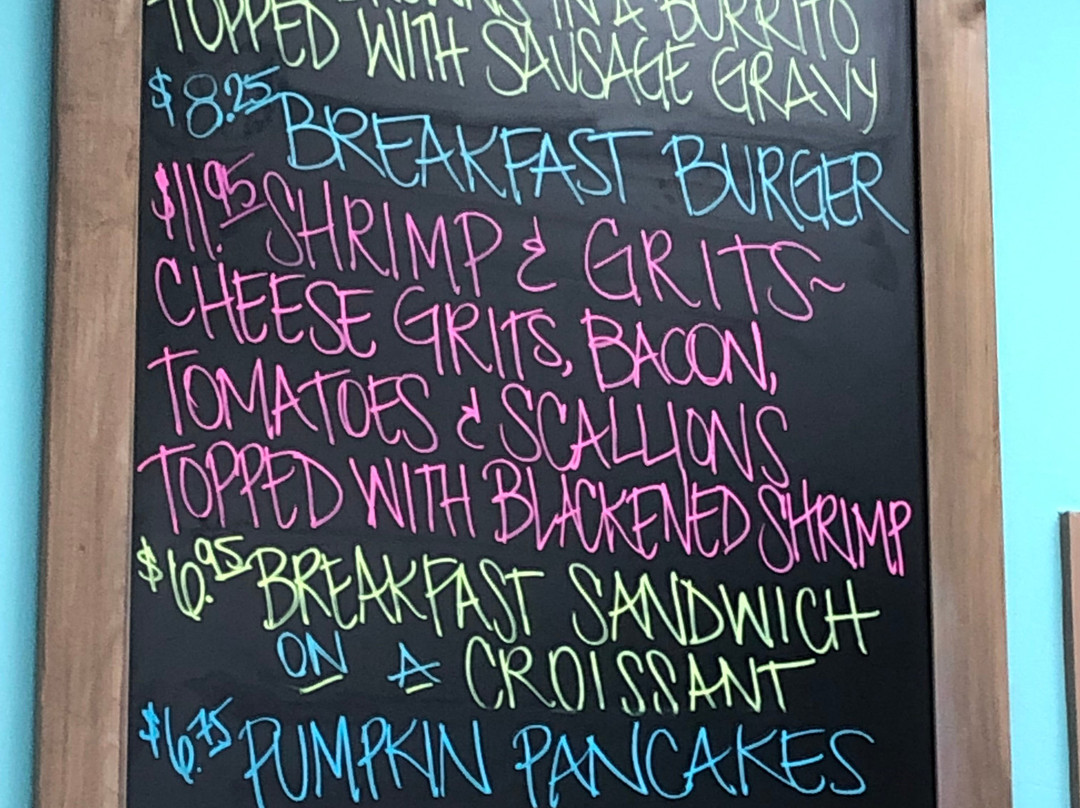 IN A BURRITO
TOPPED WITH SAUSAGE GRAVY
$8.25 BREAKFAST BURGER
$11.95 SHRIMP & GRITS~
CHEESE GRITS, BACON,
TOMATOES & SCALLIONS
TOPPED WITH BLACKENED SHRIMP
$6.95 BREAKFAST SANDWICH
ON A CROISSANT
$6.75 PUMPKIN PANCAKES